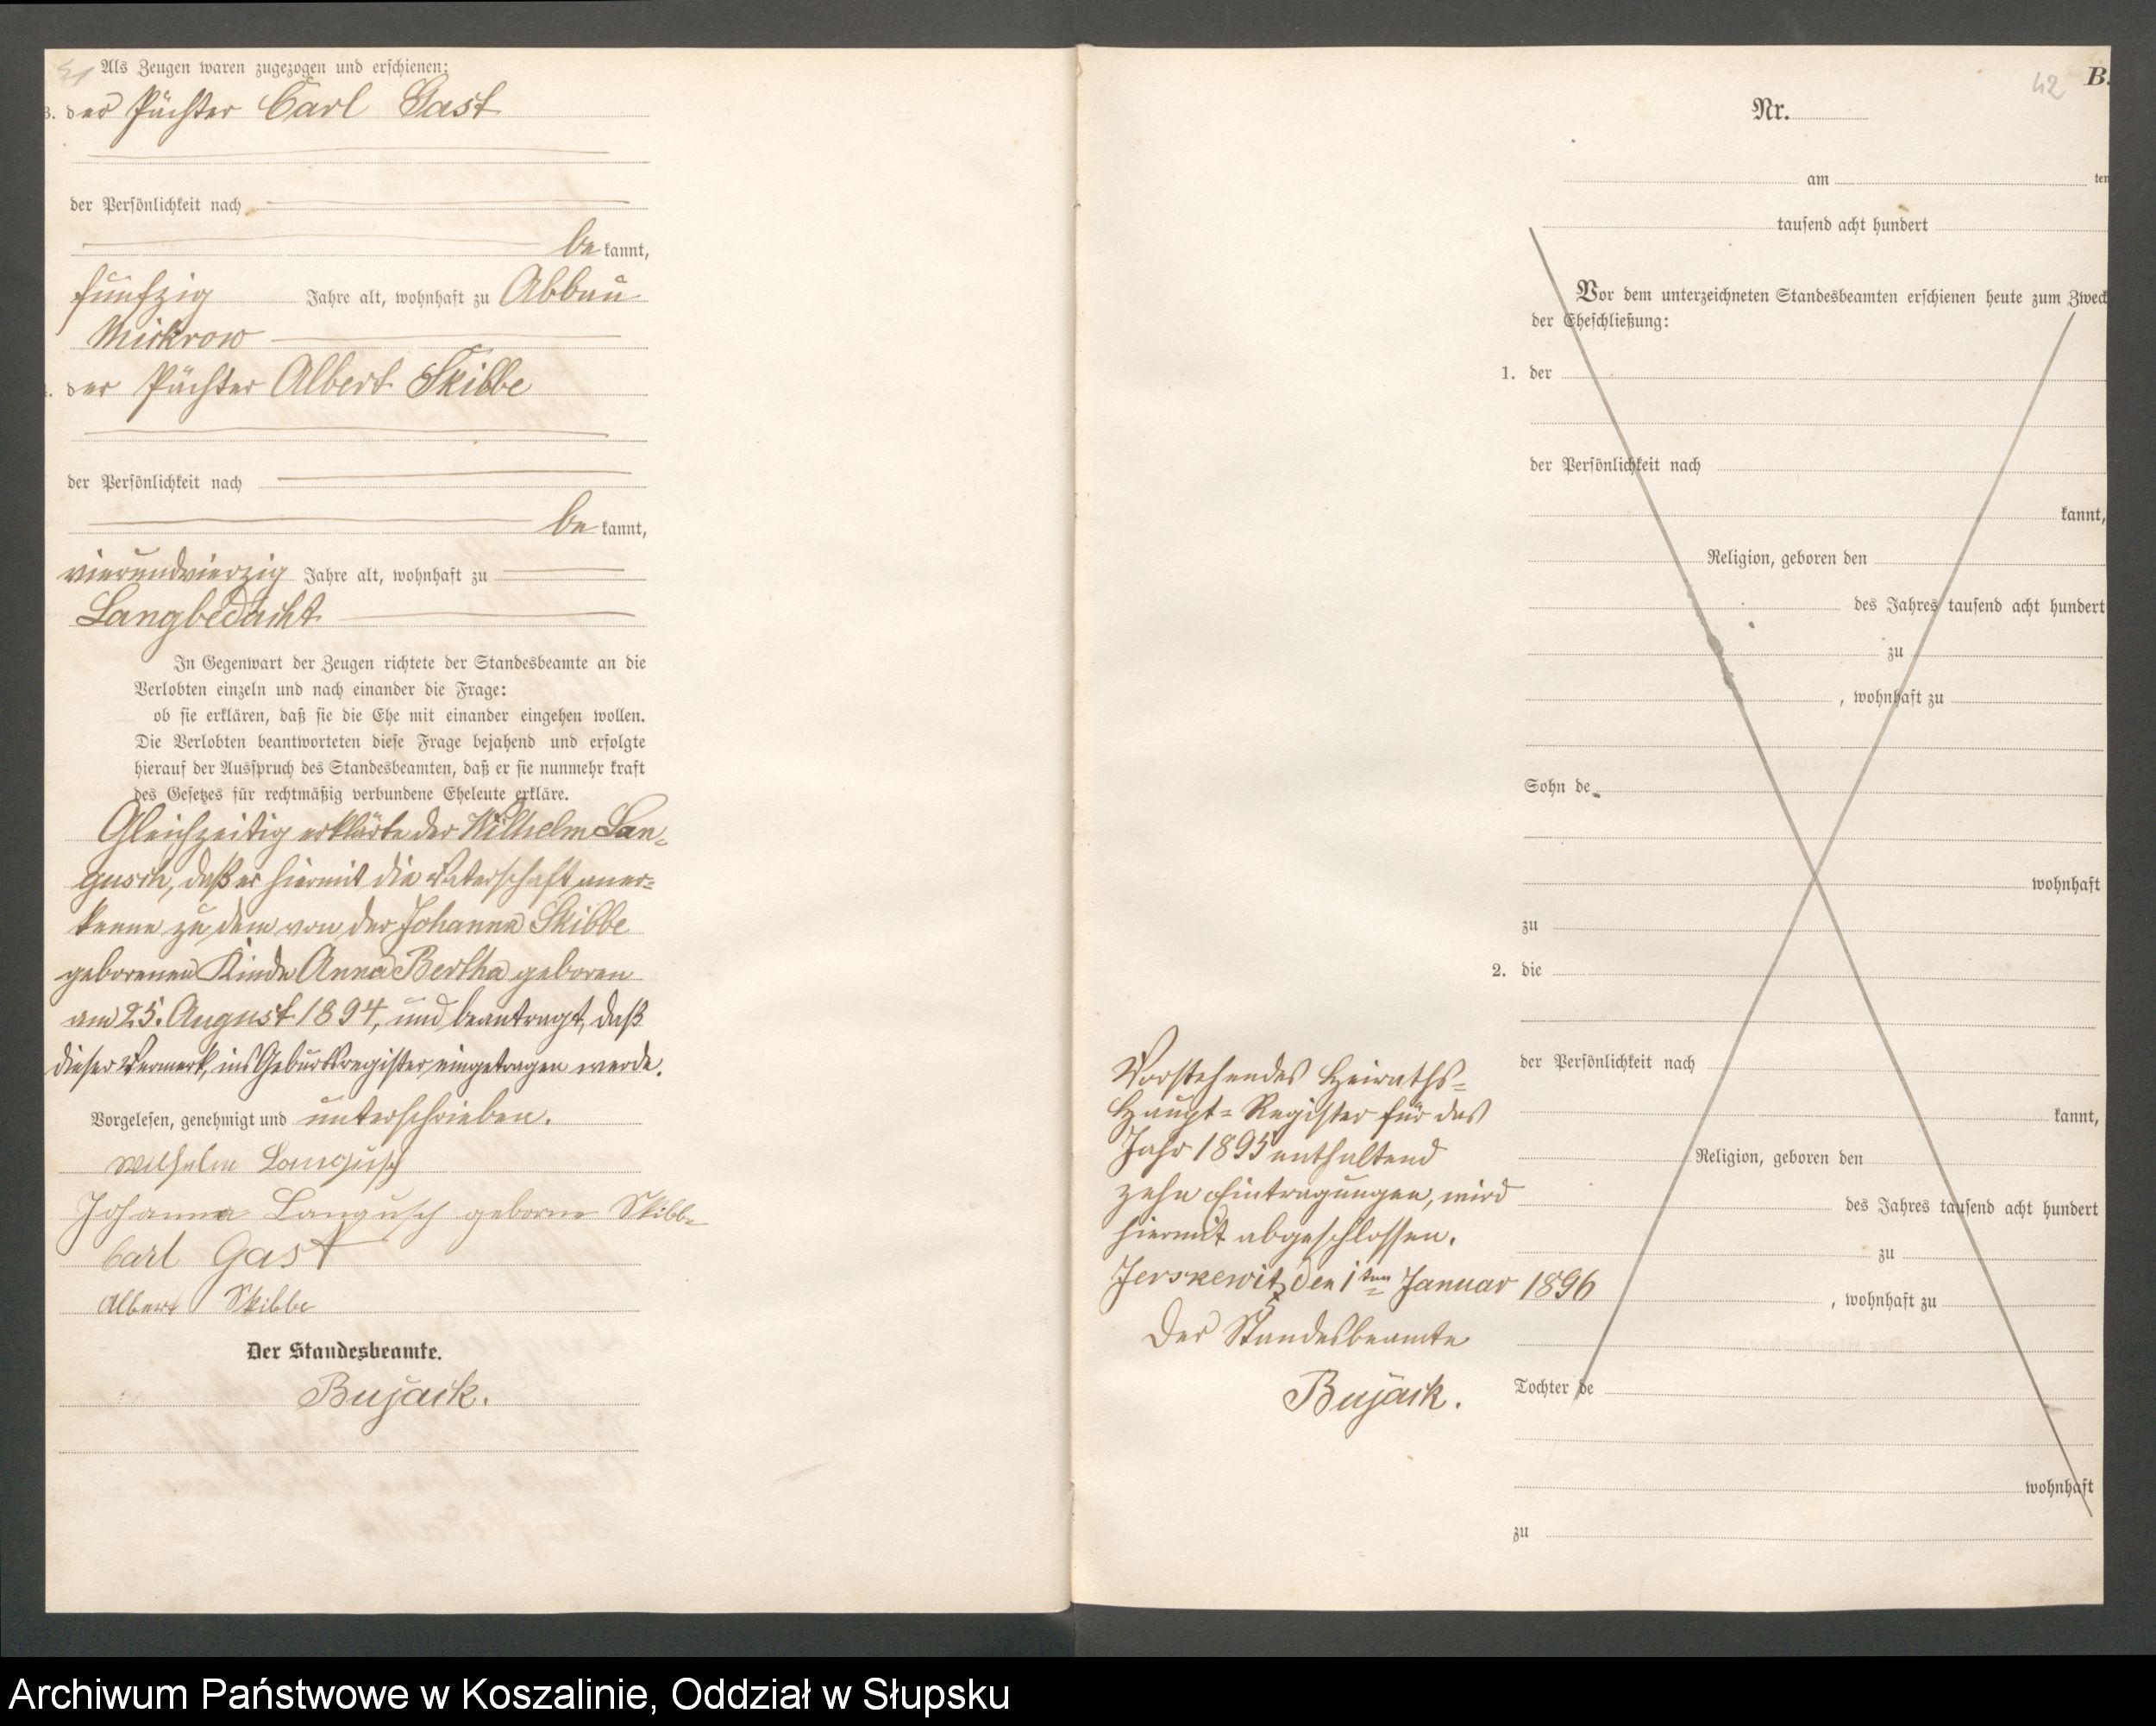 Als Zeugen waren zugezogen und erschienen:
3. der Pächter Carl Gast
der Persönlichkeit nach
be kannt,
fünfzig Jahre alt, wohnhaft zu Abbau
Mickrow
der Pächter Albert Skibbe
der Persönlichkeit nach
be kannt,
vierundvierzig Jahre alt, wohnhaft zu
Langbedacht
In Gegenwart der Zeugen richtete der Standesbeamte an die
Verlobten einzeln und nach einander die Frage:
ob sie erklären, daß sie die Ehe mit einander eingehen wollen.
Die Verlobten beantworteten diese Frage bejahend und erfolgte
hierauf der Ausspruch des Standesbeamten, daß er sie nunmehr kraft
des Gesetzes für rechtmäßig verbundene Eheleute erkläre.
Gleichzeitig erklärte der Wilhelm Lan-
gusch, daß er hiermit die Vaterschaft aner-
kenne zu dem von der Johanna Skibbe
geborenen Kinde Anna Bertha geboren
am 25. August 1894, und beantragt, daß
dieser Vermerk ins Geburtsregister eingetragen werde.
Vorgelesen, genehmigt und unterschrieben.
Wilhelm Langusch
Johanna Langusch geborne Skibbe
Carl Gast
Albert Skibbe
Der Standesbeamte.
Bujack.
42 B.
Nr.
am ten
tausend acht hundert
Vor dem unterzeichneten Standesbeamten erschienen heute zum Zweck
der Eheschließung:
1. der
der Persönlichkeit nach
kannt,
Religion, geboren den
des Jahres tausend acht hundert
zu
, wohnhaft zu
Sohn de
wohnhaft
zu
2. die
der Persönlichkeit nach
kannt,
Religion, geboren den
des Jahres tausend acht hundert
zu
, wohnhaft zu
Tochter de
wohnhaft
zu
Vorstehendes Heiraths-
Haupt-Register für das
Jahr 1895 enthaltend
zehn Eintragungen, wird
hiermit abgeschlossen.
Jerskewitz den 1ten Januar 1896
Der Standesbeamte
Bujack.
Archiwum Państwowe w Koszalinie, Oddział w Słupsku